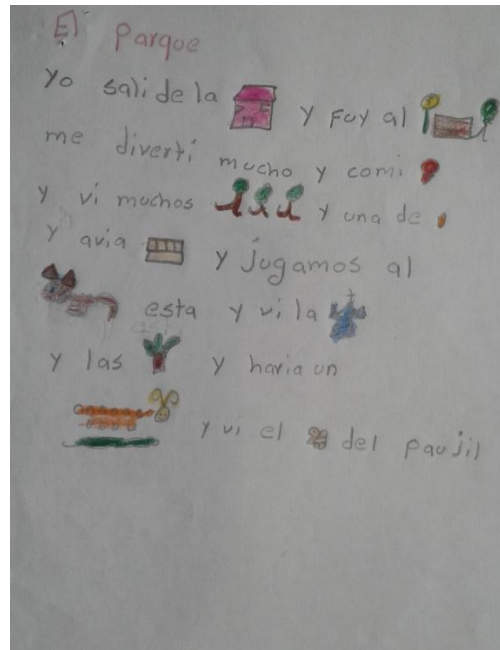 El Parque
Yo sali de la y Fuy al
me divertí mucho y comi
y vi muchos y una de
y avia y jugamos al
esta y vi la
y las y havia un
y vi el del paujil